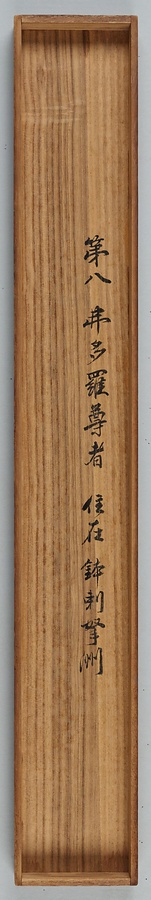 第八 弗多羅尊者 住在鉢刺拏洲